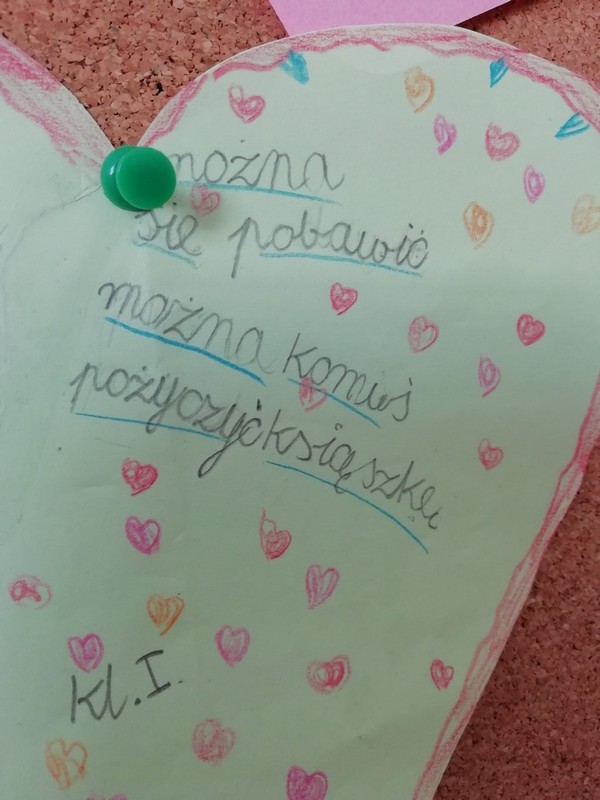 można
się pobawić
można komuś
pożyczyć ksiąszkę
kl. I.